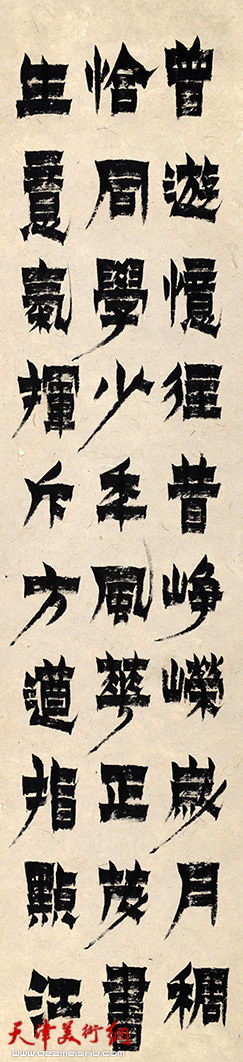 曾遊憶往昔崢嶸歲月稠
恰同學少年風華正茂書
生意氣揮斥方遒指點江
天津美術網
www.022meishu.com